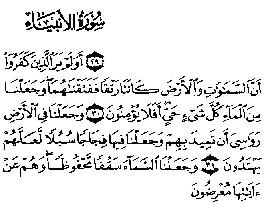 سُورَةُ الأَنبِيَاءِ
٢٩ أَوَلَمْ يَرَ الَّذِينَ كَفَرُوٓا
أَنَّ السَّمَٰوَٰتِ وَالْأَرْضَ كَانَتَا رَتْقًا فَفَتَقْنَٰهُمَا وَجَعَلْنَا
مِنَ الْمَآءِ كُلَّ شَىْءٍ حَىٍّ أَفَلَا يُؤْمِنُونَ ٣٠ وَجَعَلْنَا فِى الْأَرْضِ
رَوَٰسِىَ أَن تَمِيدَ بِهِمْ وَجَعَلْنَا فِيهَا فِجَاجًا سُبُلًا لَّعَلَّهُمْ
يَهْتَدُونَ ٣١ وَجَعَلْنَا السَّمَآءَ سَقْفًا مَّحْفُوظًا وَهُمْ عَنْ
ءَايَٰتِهَا مُعْرِضُونَ